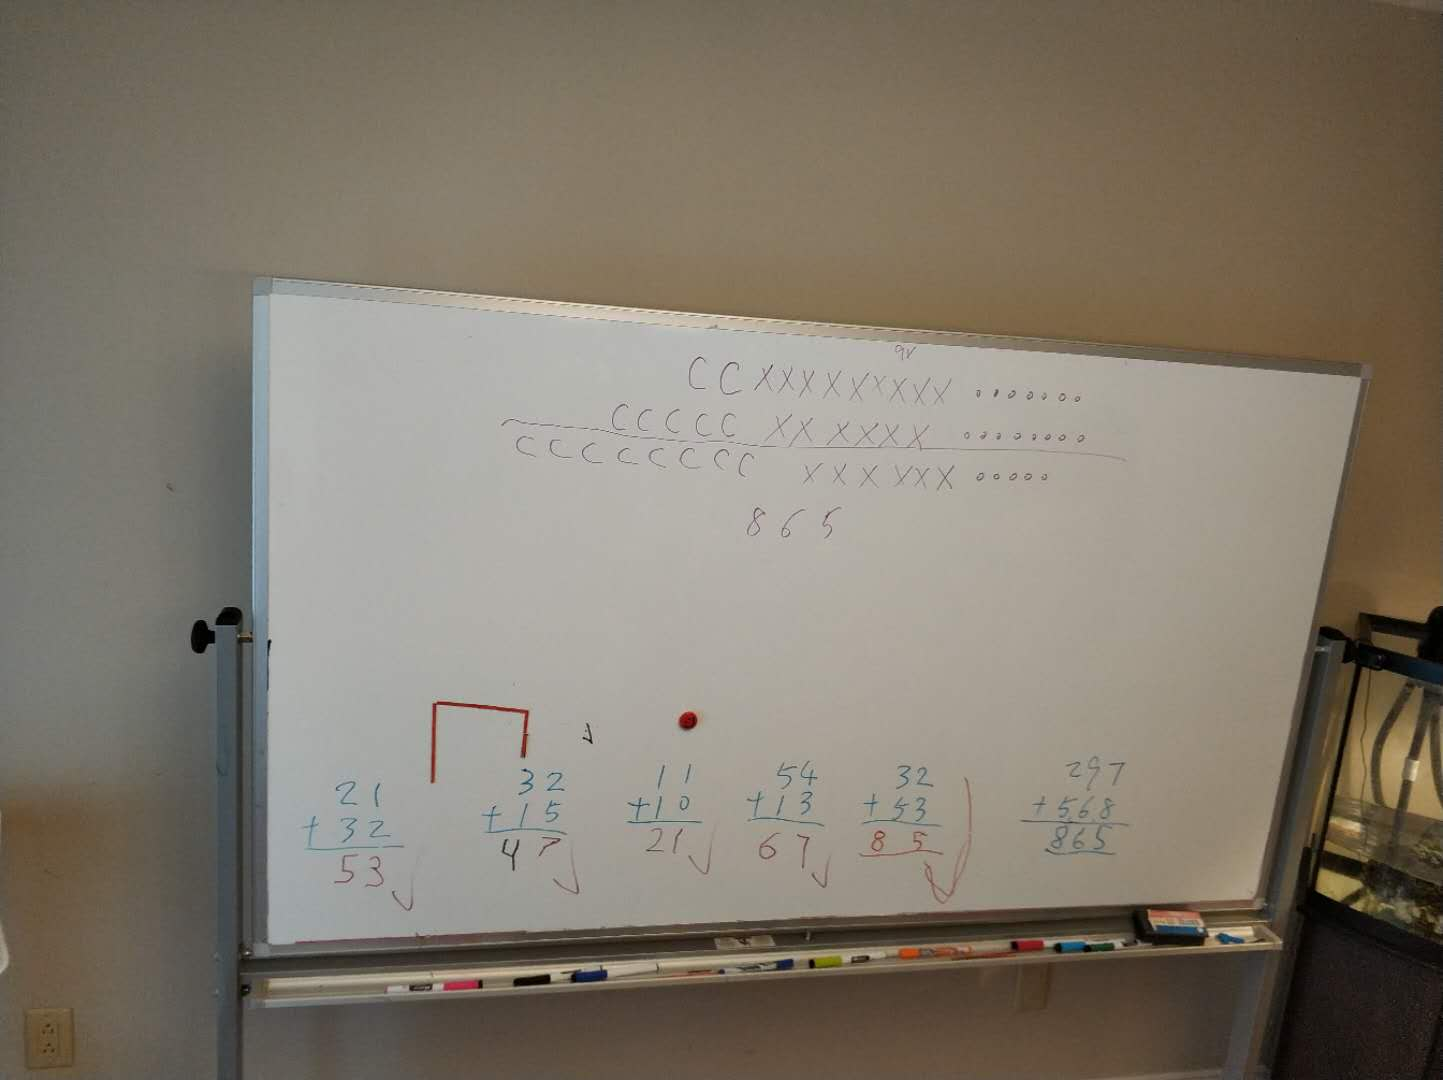 9r
CC XXXXXXXXX ooooooo
CCCCC XXXXXX oooooooo
CCCCCCCC XXXXXX ooooo
865
21
+32
53
32
+15
47
11
+10
21
54
+13
67
32
+53
85
297
+568
865